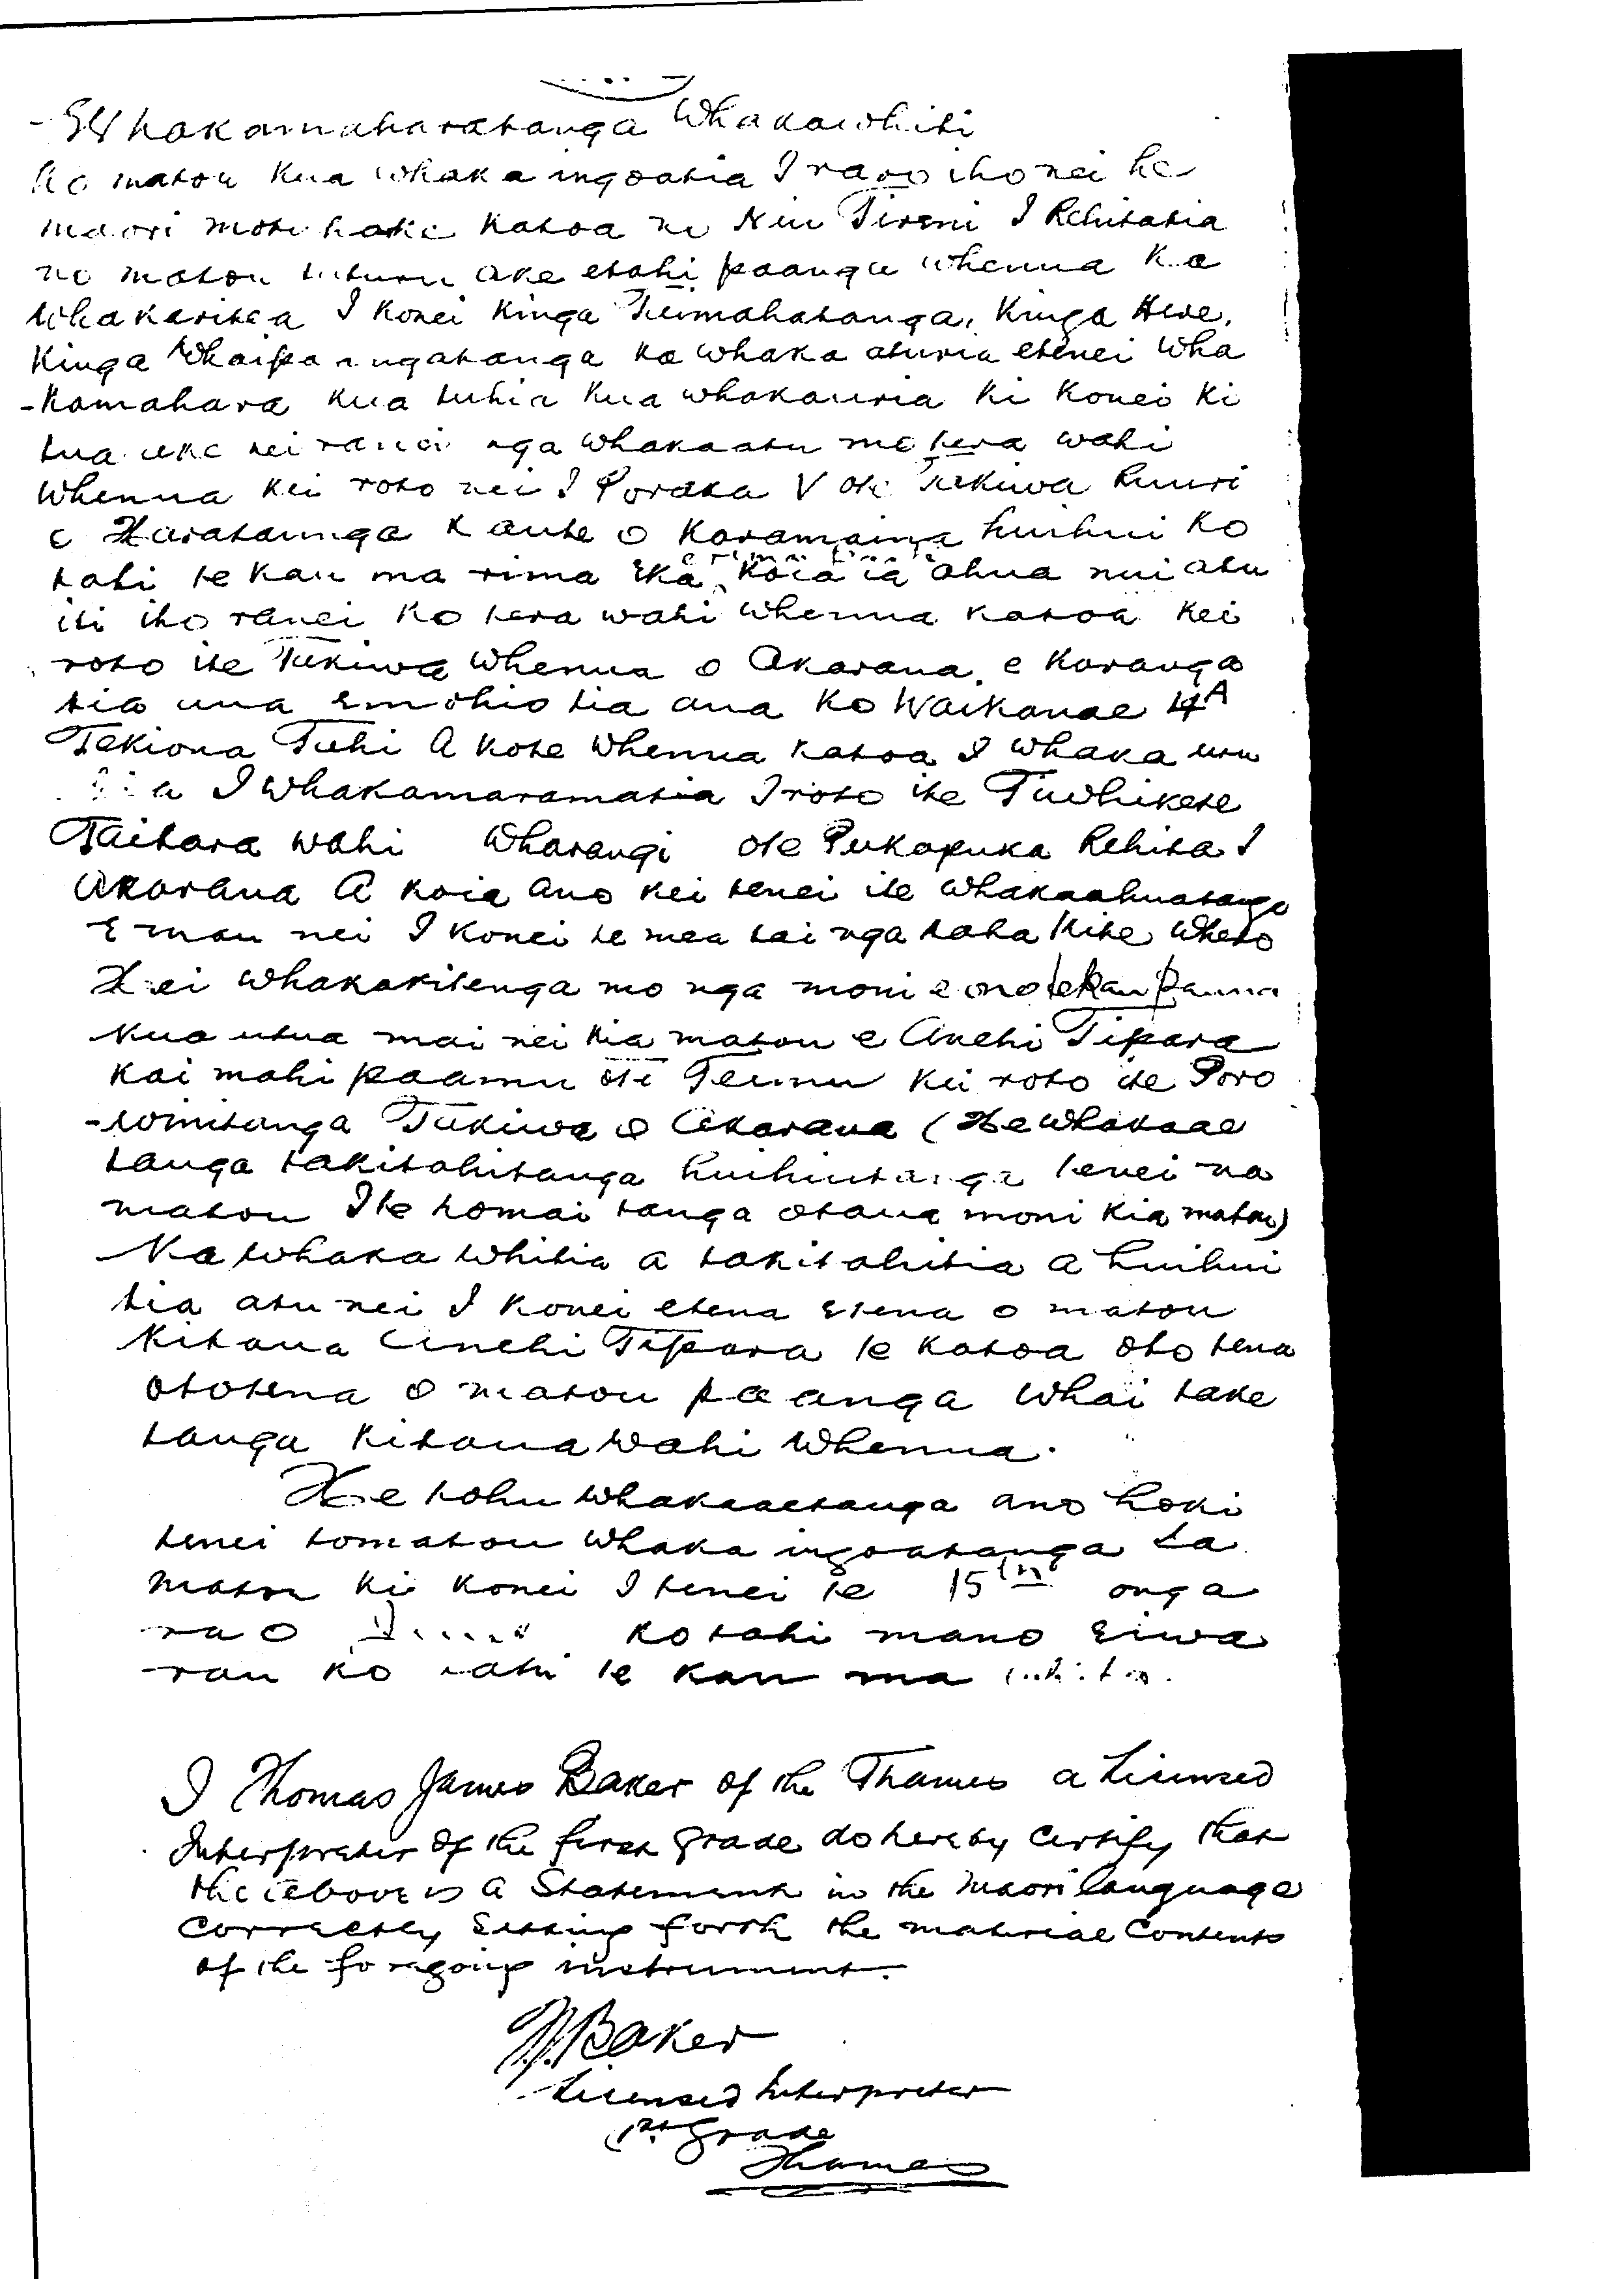 Whakamaharatanga Whakawhiti
Ko matou kua whaka ingoatia I raro iho nei he
maori motuhake katoa no Niu Tireni I Rehitatia
no matou tuturu ake etahi paanga whenua ka
whakaritea I konei kinga Tiimahatanga, kinga Here,
kinga Whaipaangatanga ka whaka aturia etenei Wha
-kamahara kua tuhia kua whakauria ki konei ki
tua ake nei ranei nga whakaatu mo tera wahi
whenua kei roto nei I Poraka V ote Takiwa Ruuri
o Harataunga Kaute o Koramaina huihui ko
tahi te kau ma rima eka, koia ia ahua nui atu
iti iho ranei ko tera wahi whenua katoa kei
roto ite Takiwa Whenua o Akarana e karanga
tia ana Emohio tia ana ko Waikanae 4A
Tekiona Tuhi A kote whenua katoa I whaka uru
I whakamaramatia I roto ite Tiwhikete
Taitara wahi Wharangi ote Pukapuka Rehita I
Akarana A koia ano kei tenei ite whakaahuatanga
E mau nei I konei te mea tai nga taha kite whero
Hei whakaritenga mo nga moni e ono tekau pauna
kua utua mai nei kia matou e Anehi Tipara
kai mahi paamu ote Teimu kei roto ite Poro
-winitanga Takiwa o Akarana (He whakaae
tanga takitahitanga huihuitanga tenei na
matou I te homai tanga otaua moni kia matou)
Ka whaka whitia a takitahitia a huihui
tia atu nei I konei etena etena o matou
kitaua Anehi Tipara te katoa oto tena
ototena o matou paanga whai take
tanga kitaua wahi whenua.
He tohu whakaaetanga ano hoki
tenei tomatou whaka ingoatanga ta
matou ki konei I tenei te 15 onga
ra o kotahi mano Eiwa
rau ko tahi te kau ma
I Thomas James Baker of the Thames a Licensed
Interpreter of the first grade do hereby certify that
the above is a Statement in the Maori language
correctly setting forth the material contents
of the foregoing instrument.
T.J. Baker
Licensed Interpreter
1st Grade
Thames